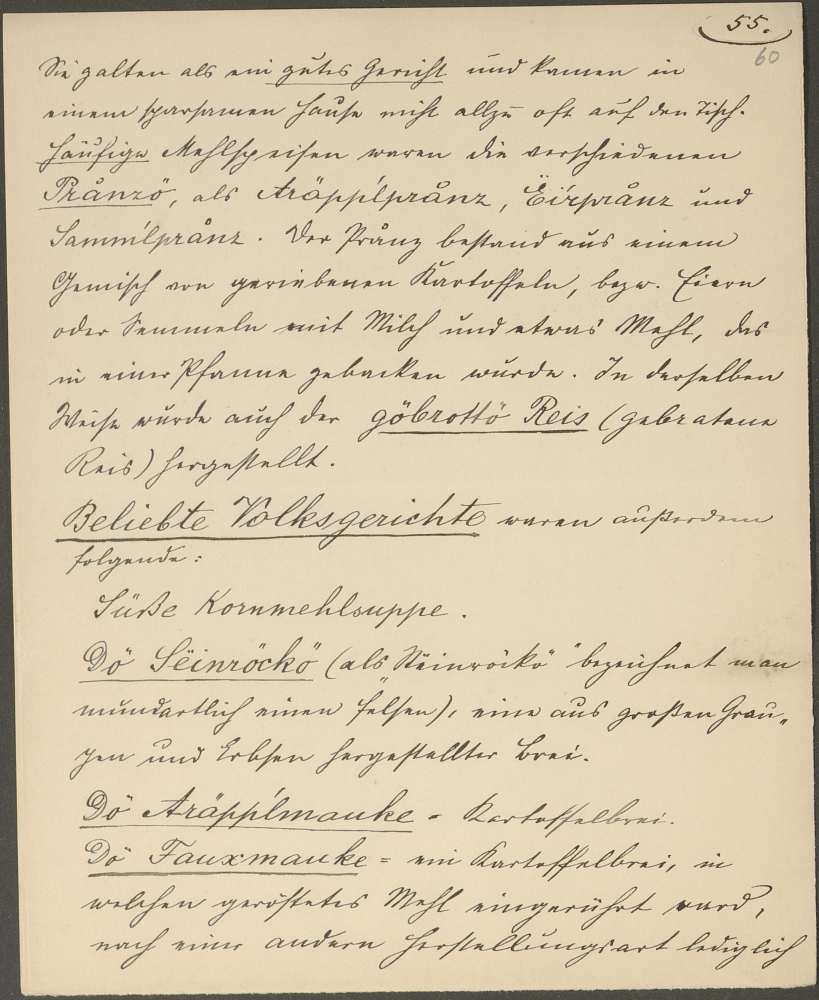 55.
60
Sie galten als ein gutes Gericht und kamen in
einem sparsamen Hause nicht allzu oft auf den Tisch.
Häufige Mehlspeisen waren die verschiedenen
Prånzö, als Aräppilprånz, Eirprånz und
Sammilprånz. Der Prånz bestand aus einem
Gemisch von geriebenen Kartoffeln, bezw. Eiern
oder Semmeln mit Milch und etwas Mehl, das
in einer Pfanne gebacken wurde. In derselben
Weise wurde auch der göbrottö Reis (gebratene
Reis) hergestellt.
Beliebte Volksgerichte waren außerdem
folgende:
Süße Kornmehlsuppe.
Dö Sëinröckö (als Stëinröckö bezeichnet man
mundartlich einen Felsen), eine aus großen Grau-
pen und Erbsen hergestellter Brei.
Dö Aräppilmauke = Kartoffelbrei.
Dö Fauxmauke = ein Kartoffelbrei, in
welchen geröstetes Mehl eingerührt ward,
nach einer andern Herstellungsart lediglich